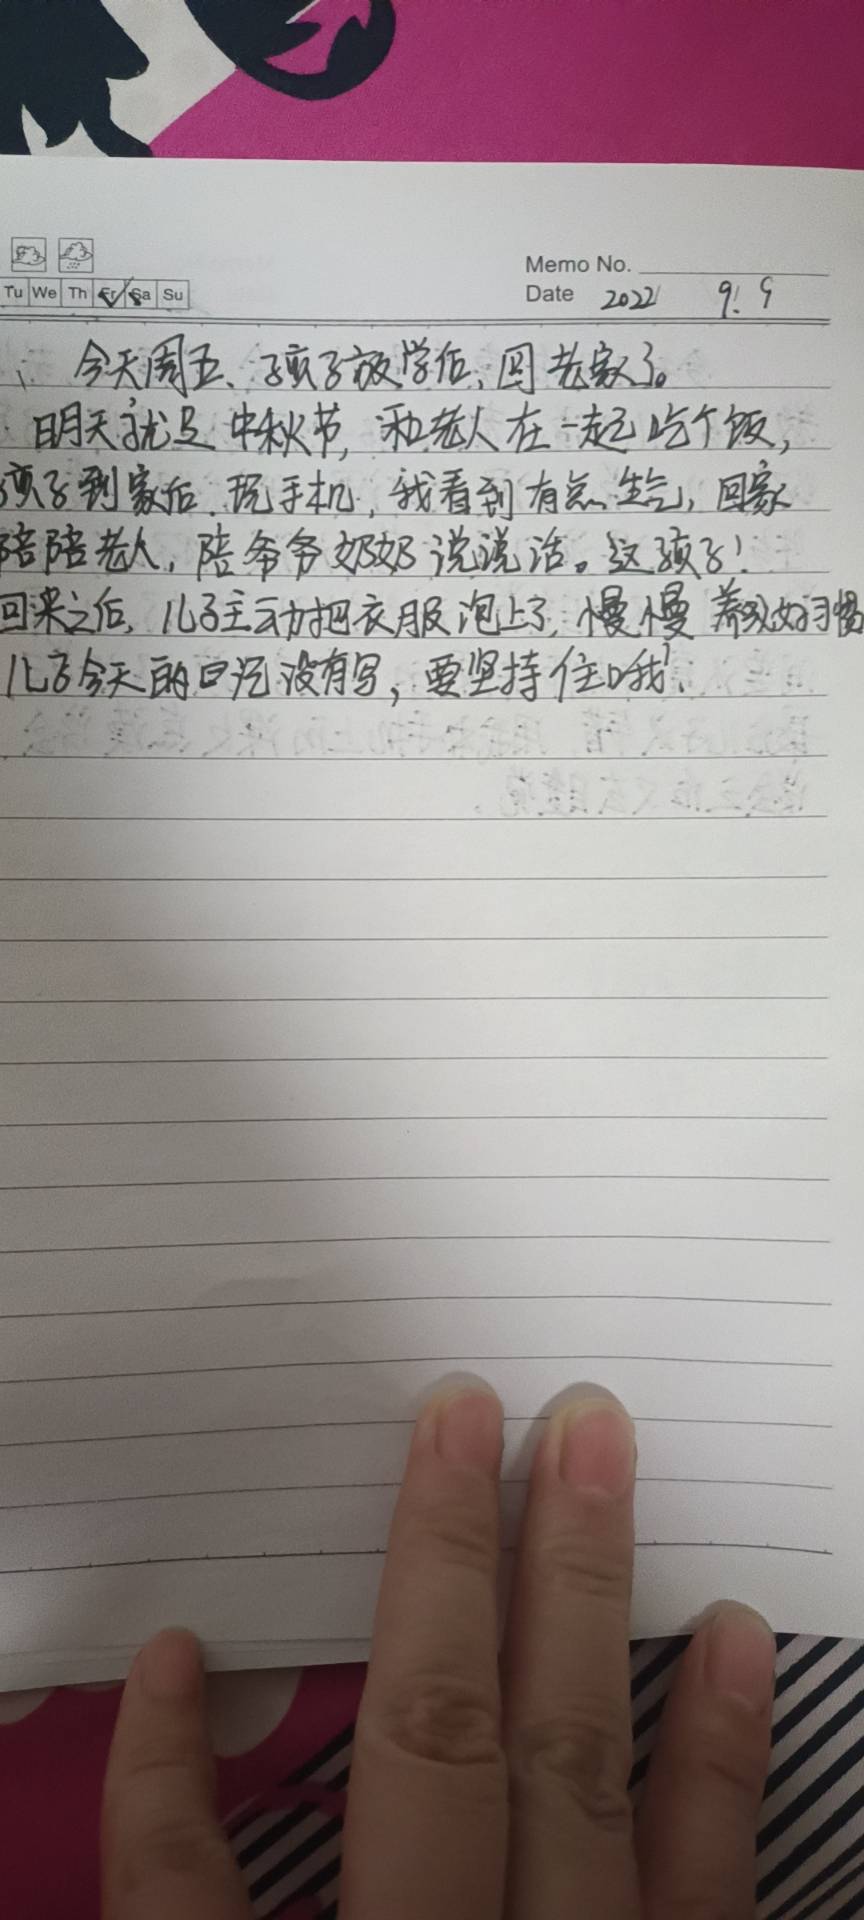 Memo No.
Tu We Th Fr Sa Su
Date 2022 9.9
今天周五、孩子放学后,回老家了。
明天就是中秋节,和老人在一起吃个饭,
孩子到家后.玩手机,我看到有点生气,回家
陪陪老人,陪爷爷奶奶说说话。这孩子!
回来之后,儿子主动把衣服泡上了,慢慢养成好习惯
儿子今天的日记没有写,要坚持住哦!